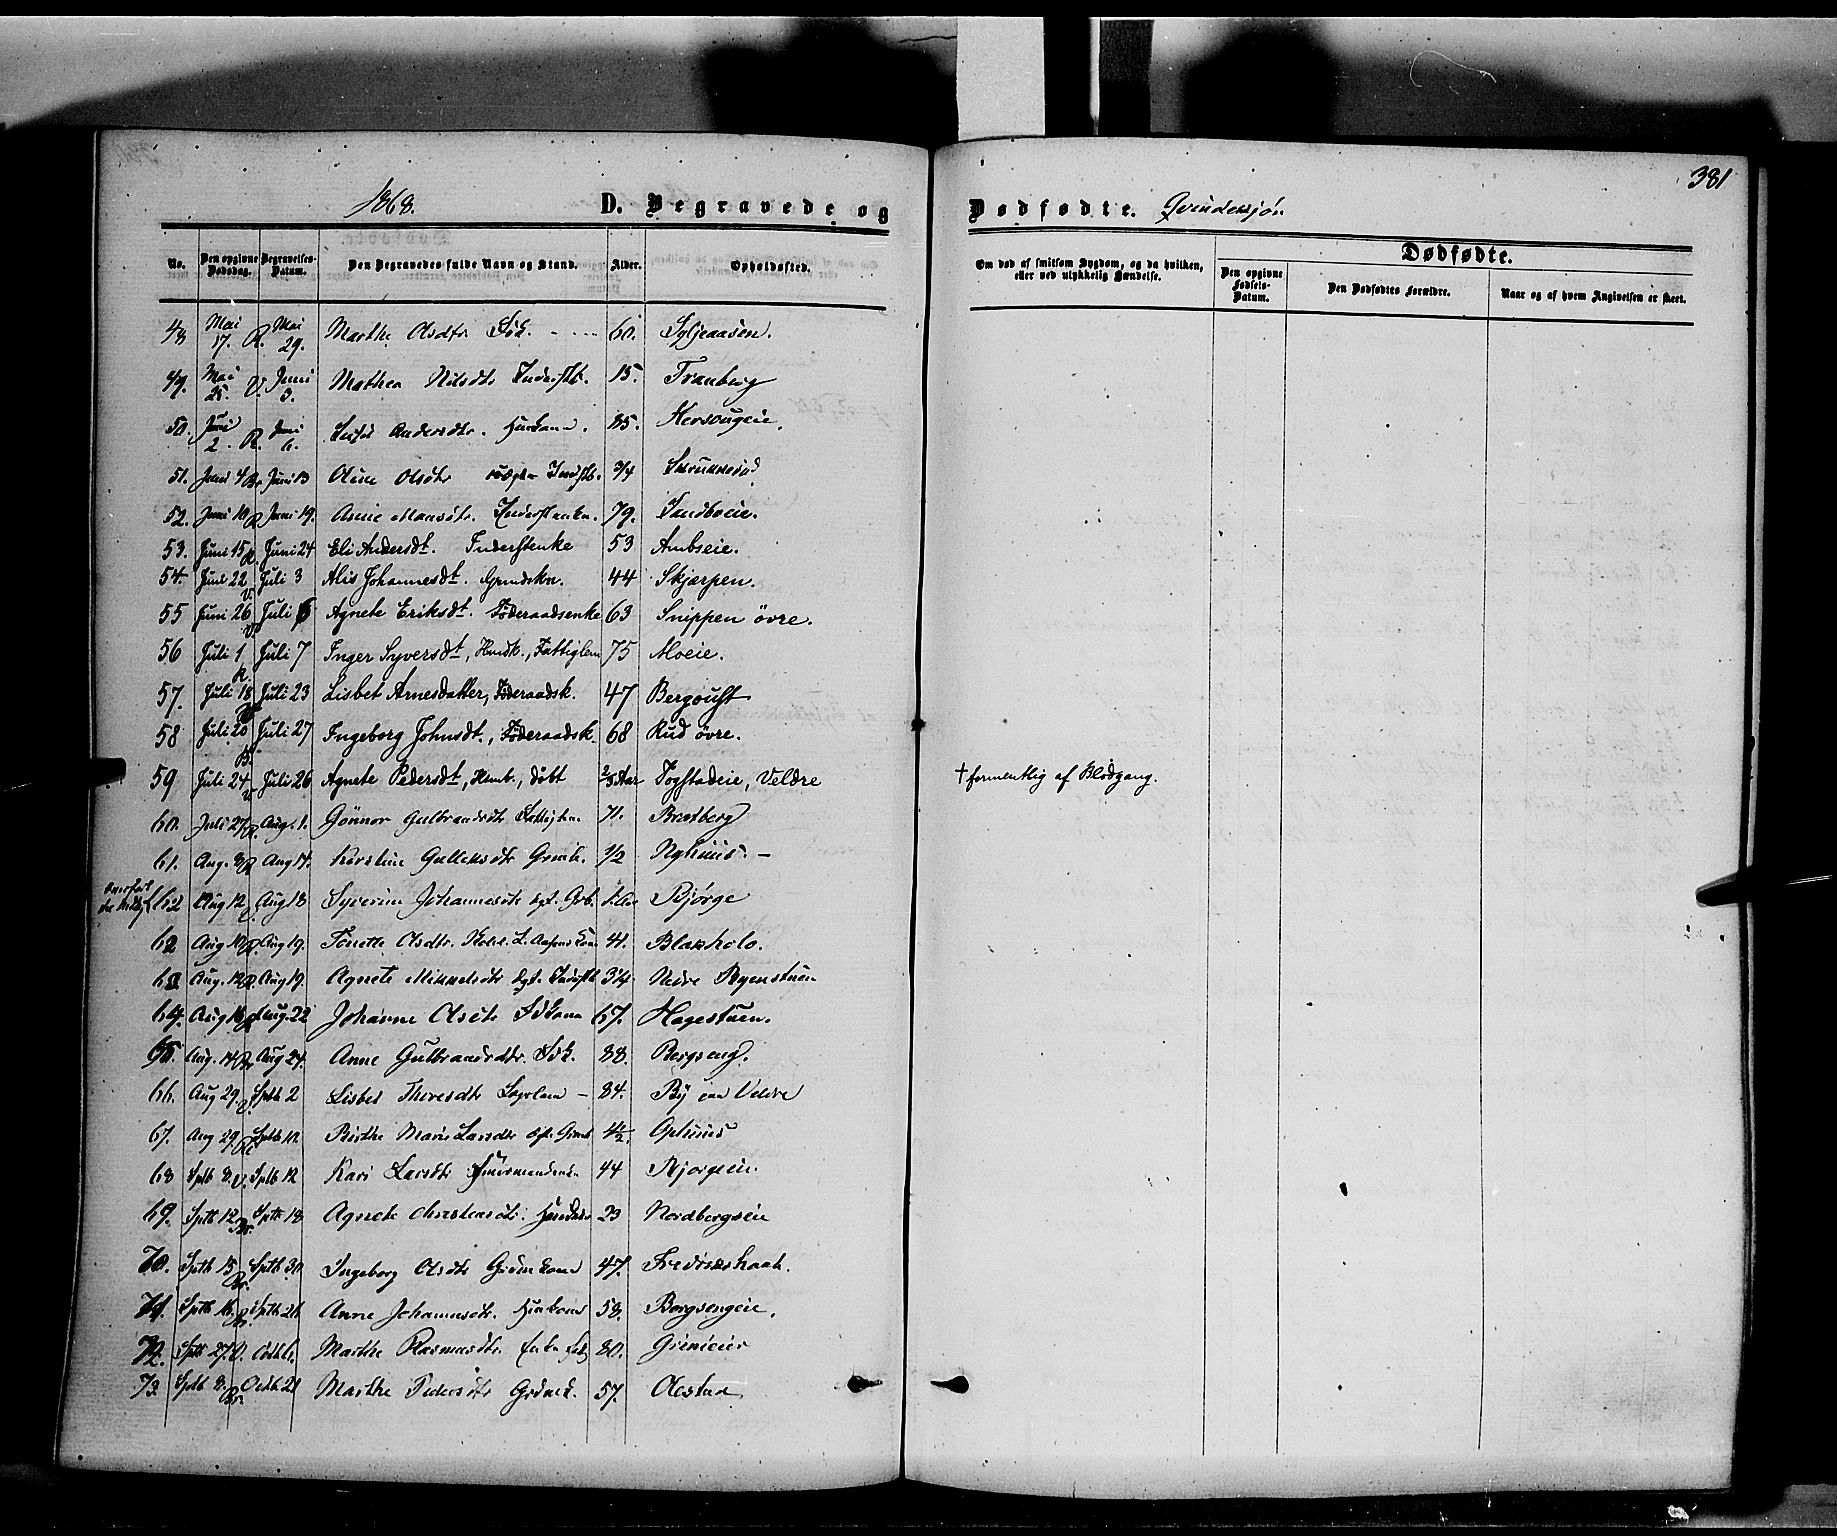 381
1868. D. Begravede og Dødfødte. Qvindekjøn
No. Den opgivne Dødsdag. Begravelses-Datum. Den Begravedes fulde Navn og Stand. Alder. Opholdssted. Om død af smitsom Sygdom, og da hvilken, eller ved ulykkelig Hændelse. Dødfødte. Den opgivne Fødsels-Datum. Den Dødfødtes Forældre. Naar og af hvem Angivelsen er skeet.
48 Mai 17. R. Mai 29. Marthe Olsdtr 60. Syljeaasen.
49. Mai 25. V. Juni 3. Mathea Nilsdtr Inderstb. 15. Tranberg
50. Juni 2. R. Juni 6. Andersdtr. Huskone. 85. Hersougeie.
51. Juni 4 Br Juni 13 Oline Olsdtr Indstb. 3/4
52. Juni 10 Juni 19. Anne Mansdtr. 79. Sandboeie.
53. Juni 15 R. Juni 24 Eli Andersdt. Inderstenke 53 Ambseie.
54. Juni 22 V. Juli 3 Alis Johannesdt. Gmdskn. 44 Skjærpen.
55 Juni 26 V Juli 6 Agnete Eriksdt. Föderaadsenke 63 Snippen övre.
56 Juli 1 R. Juli 7 Inger Syversdt, Husk., Fattiglem 75 Moeie.
57. Juli 18 Juli 23 Lisbet Arnesdatter, Föderaadsk. 47 Bergoust
58 Juli 20 B. Juli 27 Ingeborg Johnsdt., Föderaadsk. 68 Rud övre.
59 Juli 24 V Juli 26 Agnete Pedersdt, Hmb., döbt 2/3 Aar Togstadeie, Veldre † formentlig af Blodgang.
60. Juli 27 R. Aug. 1. Gönnor Gulbrandsdtr 71. Bratberg
61. Aug. 8 Aug 14. Kirstine Gullecksdtr Grmb. 1/2 Nyhuus. -
62 Aug 12 Aug 18 Syverine Johannesdtr Grb. 1 Aar Bjørge
62 Aug 10 Aug 19. Tonette Olsdtr. 41. Blakholo.
63 Aug. 12 Aug 19. Agnete Mikkelsdtr Indstb 3/4 Nedre Ryenstuen
64. Aug 16 Aug. 22 Johanne Olsdtr 67. Hagestuen.
65. Aug. 14 Br Aug 24. Anne Gulbrandsdtr. 88. Bergseng.
66. Aug 29. Sptb 2 Lisbet Thoresdtr Lægslem - 84. By i Veldre
67. Aug 29. Sptb 10 Birthe Marie Larsdtr 4 1/2. Ophuus
68 Sptb 8. V. Sptb 12 Kari Larsdtr 44 Bjørgeeie.
69. Sptb 12 Br. Sptb 18 Agnete Christensdtr. 23 Nordbergseie
70. Sptb 15 Br. Sptb 30 Ingeborg Olsdtr Grdm kone 47. Fredriksshaab.
71. Sptb 16 Br. Sptb 26 Anne Johannesdtr. Huskone 58. Bergsengeie.
72. Sptb 27 V. Octb 6. Marthe Rasmusdtr. Enke 80. Grimeeie
73. Sptb 8. Br. Octb 21 Marthe Pedersdtr Grdmk. 57. Olestad